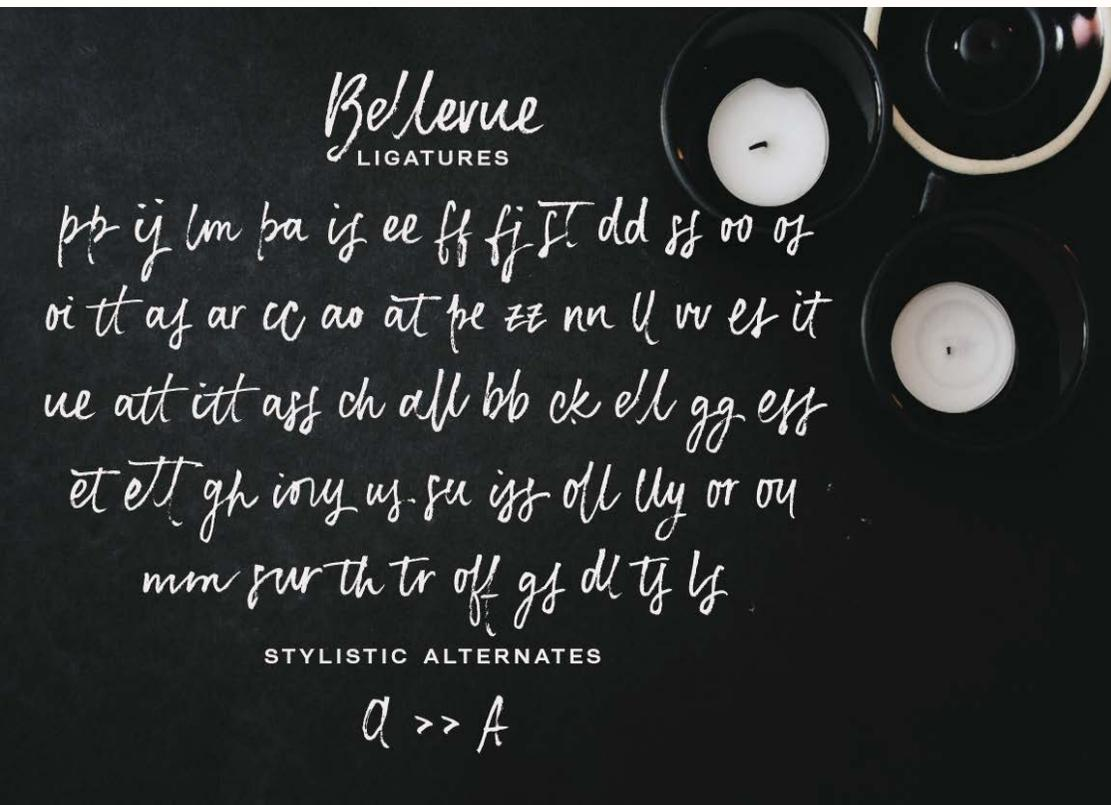 Bellevue
LIGATURES
pp ij lm pa is ee ff fj st dd ss oo os
oi tt as ar cc ao at pe zz nn ll vv es it
ue att itt ass ch all bb ck ell gg ess
et ett gh iory us su iss oll lly or ou
mm sur th tr off gs dl ts ls
STYLISTIC ALTERNATES
a >> A